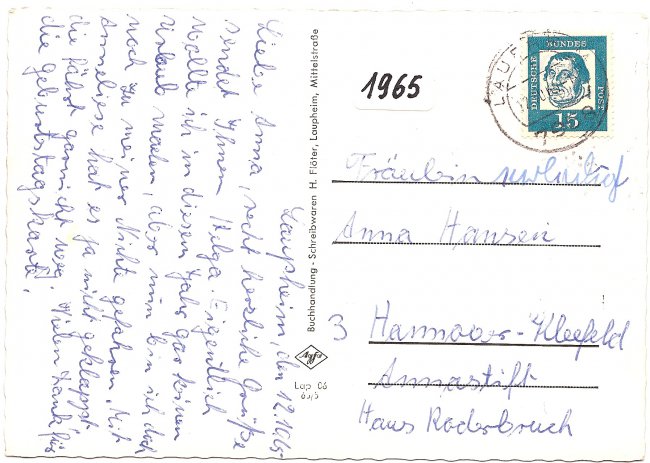 Laupheim, den 12.10.65
Liebe Anna, recht herzliche Grüße
sendet Ihnen Helga. Eigentlich
wollte ich in diesem Jahr gar keinen
Urlaub machen, aber nun bin ich doch
noch zu meiner Nichte gefahren. Mit
Anneliese hat es ja nicht geklappt
die fährt garnicht weg. Vielen Dank für
die Geburtstagskarte!
Buchhandlung - Schreibwaren H. Flöter, Laupheim, Mittelstraße
Agfa
Lap 06
1965
DEUTSCHE BUNDESPOST
15
Fräulein
Anna Hansen
3
Hannover-Kleefeld
Annastift
Haus Roderbruch